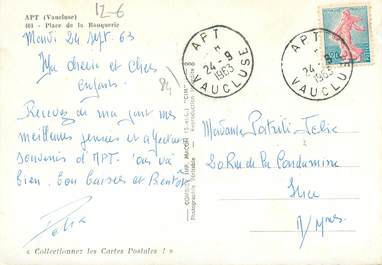 APT (Vaucluse)
401 - Place de la Bouquerie
12-6
Mardi 24 Sept. 63
Me chers et chers
enfants.
84
Recevez de ma part mes
meilleures pensées et affectueux
souvenirs d'APT.
bien. Bons baisers et Bientôt
« Collectionnez les Cartes Postales ! »
COMBIER IMP. MACON (S.-et-L.) "CIM"
Photographie Véritable - Reproduction Interdite
APT
24-9
1963
VAUCLUSE
APT
24-9
1963
VAUCLUSE
Madame
20 Rue de la Condamine
Nice
A/Mmes